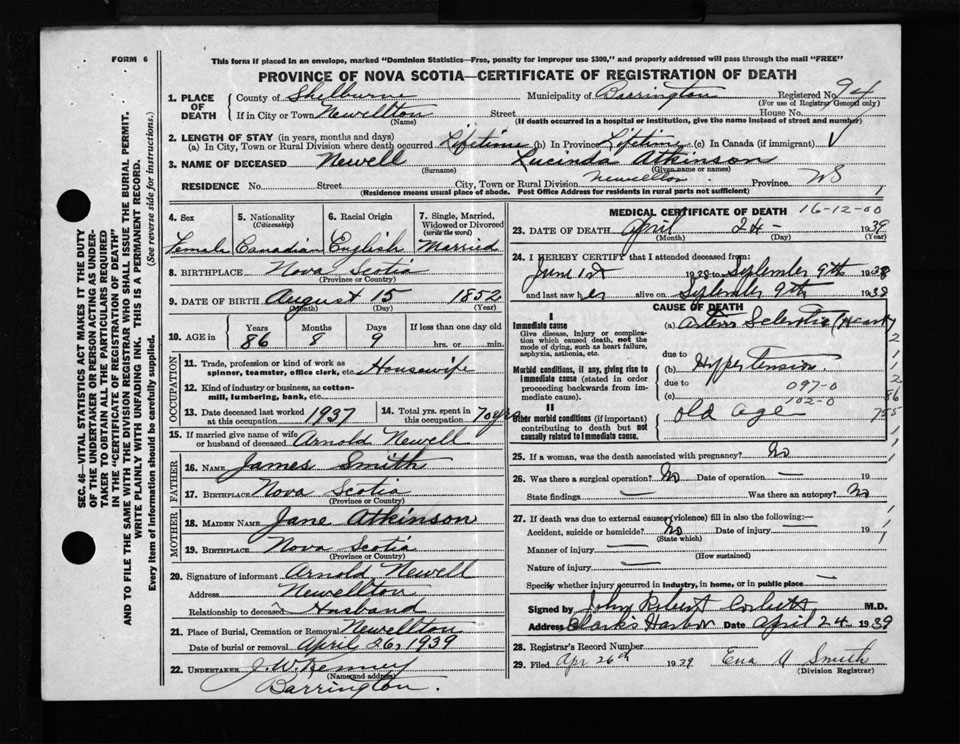 FORM 6
This form if placed in an envelope, marked "Dominion Statistics—Free, penalty for improper use $300," and properly addressed will pass through the mail "FREE"
PROVINCE OF NOVA SCOTIA—CERTIFICATE OF REGISTRATION OF DEATH
1. PLACE OF DEATH
County of Shelburne Municipality of Barrington Registered No. 94
(For use of Registrar General only)
If in City or Town Newellton Street House No.
(Name) (If death occurred in a hospital or institution, give the name instead of street and number)
2. LENGTH OF STAY (in years, months and days)
(a) In City, Town or Rural Division where death occurred Lifetime (b) In Province Lifetime (c) In Canada (if immigrant)
3. NAME OF DECEASED Newell Lucinda Atkinson
(Surname) (Given name or names)
RESIDENCE No. Street City, Town or Rural Division Newellton Province NS
(Residence means usual place of abode. Post Office Address for residents in rural parts not sufficient) 1
4. Sex Female
5. Nationality (Citizenship) Canadian
6. Racial Origin English
7. Single, Married, Widowed or Divorced (write the word) Married
8. BIRTHPLACE Nova Scotia
(Province or Country)
9. DATE OF BIRTH August 15 1852
(Month) (Day) (Year)
10. AGE in Years 86 Months 8 Days 9 If less than one day old
hrs. or min.
OCCUPATION
11. Trade, profession or kind of work as spinner, teamster, office clerk, etc. Housewife
12. Kind of industry or business, as cotton-mill, lumbering, bank, etc.
13. Date deceased last worked at this occupation 1937
14. Total yrs. spent in this occupation 70 yrs
15. If married give name of wife or husband of deceased Arnold Newell
FATHER
16. NAME James Smith
17. BIRTHPLACE Nova Scotia
(Province or Country)
MOTHER
18. MAIDEN NAME Jane Atkinson
19. BIRTHPLACE Nova Scotia
(Province or Country)
20. Signature of informant Arnold Newell
Address Newellton
Relationship to deceased Husband
21. Place of Burial, Cremation or Removal Newellton
Date of burial or removal April 26, 1939
22. UNDERTAKER J. W. Kenney
(Name and address)
Barrington.
MEDICAL CERTIFICATE OF DEATH 16-12-00
23. DATE OF DEATH April 24 - 1939
(Month) (Day) (Year)
24. I HEREBY CERTIFY that I attended deceased from:
June 1st to September 9th 1938
and last saw her alive on September 9th 1938
CAUSE OF DEATH
I
Immediate cause
Give disease, injury or complication which caused death, not the mode of dying, such as heart failure, asphyxia, asthenia, etc.
(a)
due to
Morbid conditions, if any, giving rise to immediate cause (stated in order proceeding backwards from immediate cause).
(b) Hypertension
due to 097-0
(c) 102-0
II
Other morbid conditions (if important) contributing to death but not causally related to Immediate cause.
old age
25. If a woman, was the death associated with pregnancy? No
26. Was there a surgical operation? No Date of operation —
State findings — Was there an autopsy? No
27. If death was due to external causes (violence) fill in also the following:—
Accident, suicide or homicide? No Date of injury — 19
(State which)
Manner of injury —
(How sustained)
Nature of injury —
Specify whether injury occurred in industry, in home, or in public place —
Signed by John Robert Corbett M.D.
Address Clark's Harbor Date April 24 1939
28. Registrar's Record Number
29. Filed Apr 26th 1939 Eva A Smith
(Division Registrar)
SEC. 46—VITAL STATISTICS ACT MAKES IT THE DUTY
OF THE UNDERTAKER OR PERSON ACTING AS UNDER-
TAKER TO OBTAIN ALL THE PARTICULARS REQUIRED
IN THE "CERTIFICATE OF REGISTRATION OF DEATH"
AND TO FILE THE SAME WITH THE DIVISION REGISTRAR WHO SHALL ISSUE THE BURIAL PERMIT.
WRITE PLAINLY WITH UNFADING INK. THIS IS A PERMANENT RECORD.
Every item of information should be carefully supplied. (See reverse side for instructions.)